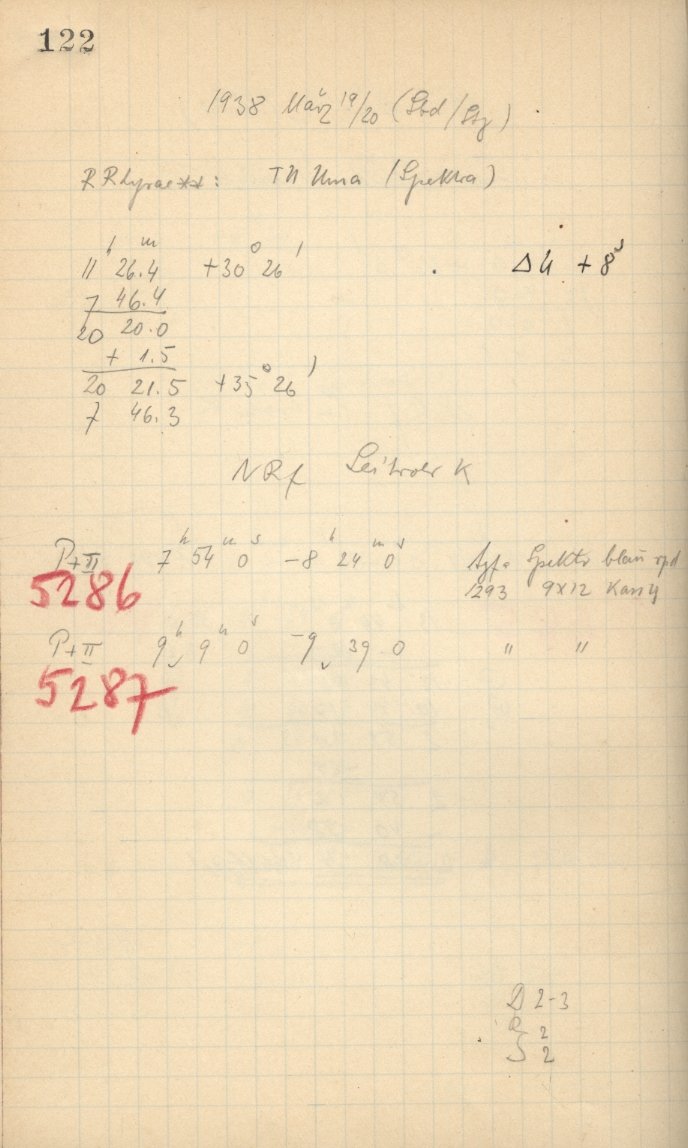 122
1938 März 19/20 (Sbd/Stg)
RR Lyrae **: TU Uma (Spektra)
11 h 26.4 m +30° 26' Δu +8 s
7 46.4
20 20.0
+ 1.5
20 21.5 +35° 26'
7 46.3
NRf Leitrohr K
P+II 7 h 54 m 0 s -8 h 24 m 0 s Agfa Spektr blau rpd
5286 1293 9x12 Kass
P+II 9 h 9 m 0 s -9 39 0 " "
5287
D 2-3
R 2
S 2